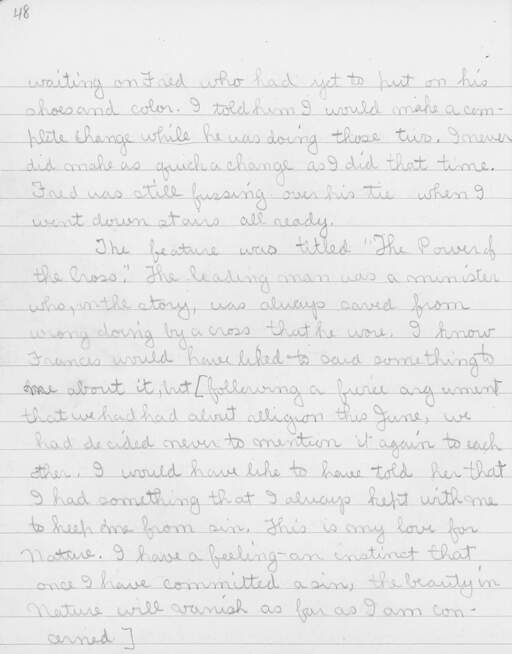 48
waiting on Fred who had yet to put on his
shoes and color. I told him I would make a com-
plete change while he was doing those two. I never
did make as quick a change as I did that time.
Fred was still fussing over his tie when I
went down stairs all ready.
The feature was titled "The Power of
the Cross." The leading man was a minister
who, in the story, was always saved from
wrong doing by a cross that he wore. I know
Frances would have liked to said something to
me about it, but [following a fierce argument
that we had had about religion this June, we
had decided never to mention it again to each
other. I would have like to have told her that
I had something that I always kept with me
to keep me from sin. This is my love for
Nature. I have a feeling-an instinct that
once I have committed a sin, the beauty in
Nature will vanish as far as I am con-
cerned]